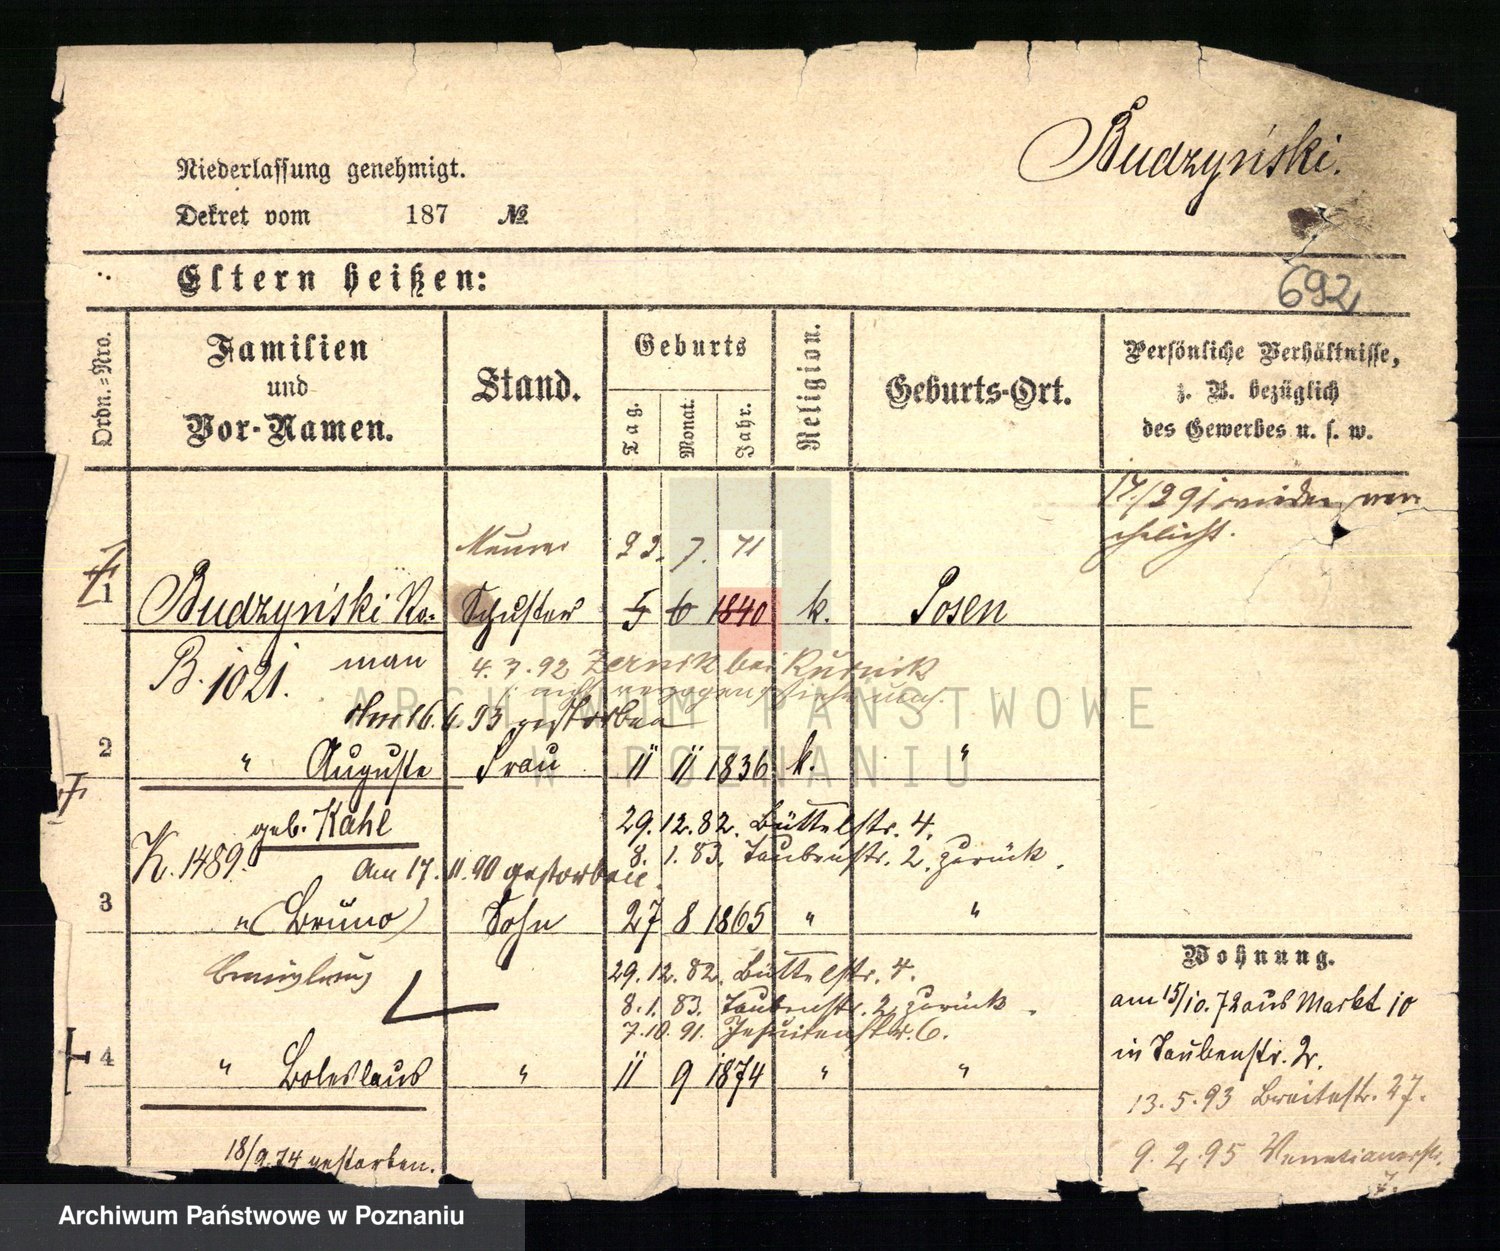 Budzyński.
Niederlassung genehmigt.
Dekret vom 187 №
Eltern heißen:
692
Ordn.=Nro.
Familien
und
Vor-Namen.
Stand.
Geburts
Tag.
Monat.
Jahr.
Religion.
Geburts-Ort.
Persönliche Verhältnisse,
z. B. bezüglich
des Gewerbes u. s. w.
17/2 91 wieder ver
ehelicht.
23. 7. 71
1 Budzyński Ro- Schuster 5 6 1840 k. Posen
B. 1021. man 4. 7. 92 Zernik bei Kurnik
Am 16. 6. 93 gestorben
2 " Auguste Frau 11 11 1836 k. "
geb. Kahl 29. 12. 82. Büttelstr. 4.
K. 1489. 8. 1. 83. Taubenstr. 2. zurück.
Am 17. 11. 90 gestorben.
3 " (Bruno) Sohn 27 8 1865 " "
29. 12. 82. Büttelstr. 4.
8. 1. 83. Taubenstr. 2. zurück.
7. 10. 91. Jesuitenstr. 6.
4 " Boleslaus " 11 9 1874 " "
18/9. 74 gestorben.
Wohnung.
am 15/10. 72 aus Markt 10
in Taubenstr. 2.
13. 5. 93 Breitestr. 27.
9. 2. 95 Venetianerstr.
7.
ARCHIWUM PAŃSTWOWE
W POZNANIU
Archiwum Państwowe w Poznaniu